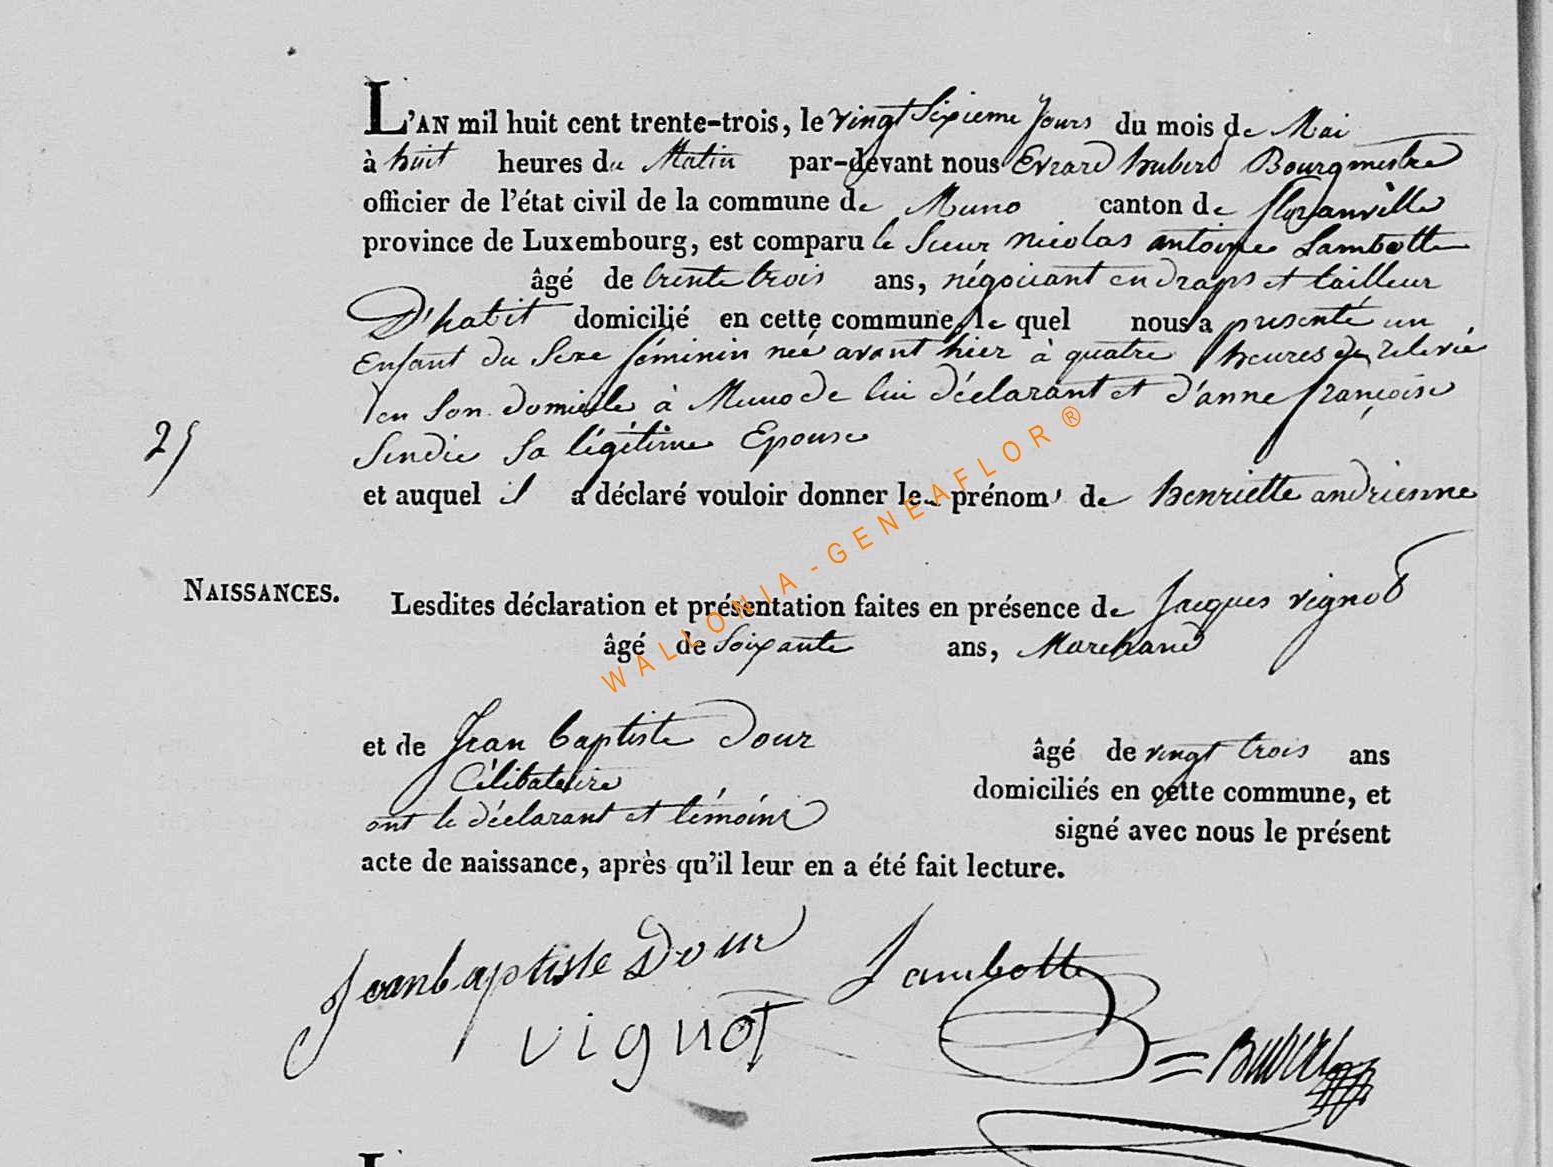 L'AN mil huit cent trente-trois, le vingt Sixieme jours du mois de Mai
à huit heures du Matin par-devant nous Evrard hubert Bourgmestre
officier de l'état civil de la commune de Muno canton de floranville
province de Luxembourg, est comparu le Sieur nicolas antoine Lambotte
âgé de trente trois ans, négociant en draps et tailleur
D'habit domicilié en cette commune, le quel nous a presenté un
Enfant du Sexe féminin neé avant hier à quatre heures de relevée
en Son domicile à Muno de lui déclarant et d'anne françoise
Sindic Sa légitime Epouse
25
et auquel il a déclaré vouloir donner les prénoms de henriette andrienne
NAISSANCES.
Lesdites déclaration et présentation faites en présence de Jacques vignot
âgé de Soixante ans, Marchand
et de Jean baptiste Dour âgé de vingt trois ans
Célibataire domiciliés en cette commune, et
ont le déclarant et témoins signé avec nous le présent
acte de naissance, après qu'il leur en a été fait lecture.
Jean baptiste Dour Lambotte
vignot hubert
WALLONIA-GENEAFLOR®